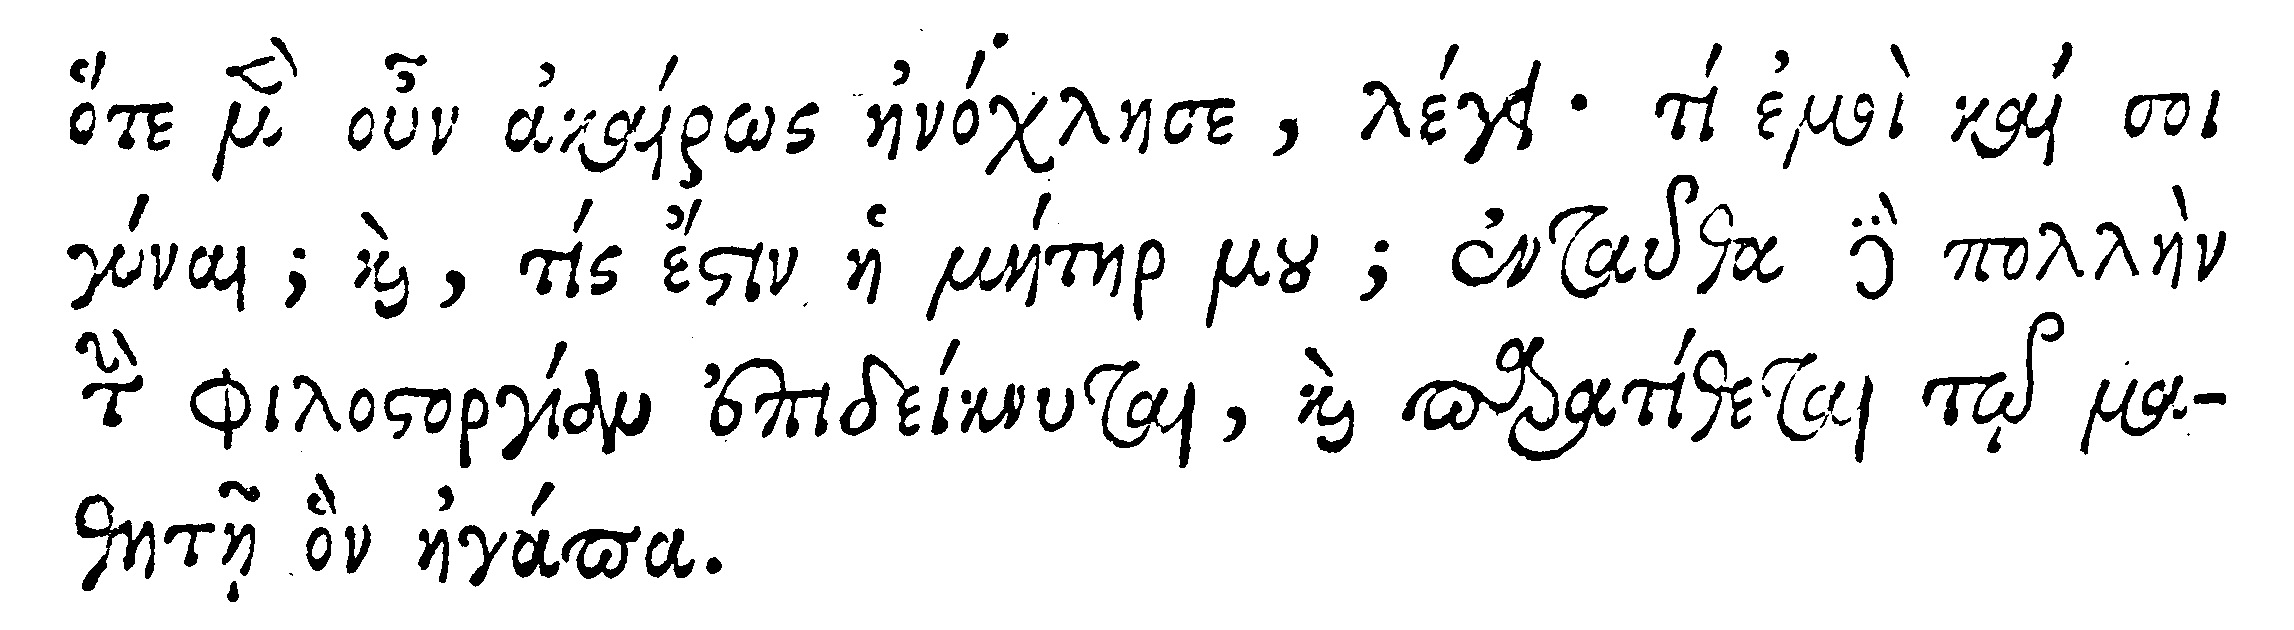 ὅτε μὲν οὖν ἀκαίρως ἠνόχλησε, λέγει· τί ἐμοὶ καί σοι
γύναι; καὶ, τίς ἔστιν ἡ μήτηρ μου; ἐνταῦθα δὲ πολλὴν
τὴν φιλοστοργίαν ἐπιδείκνυται, καὶ παρατίθεται τῷ μα-
θητῇ ὃν ἠγάπα.